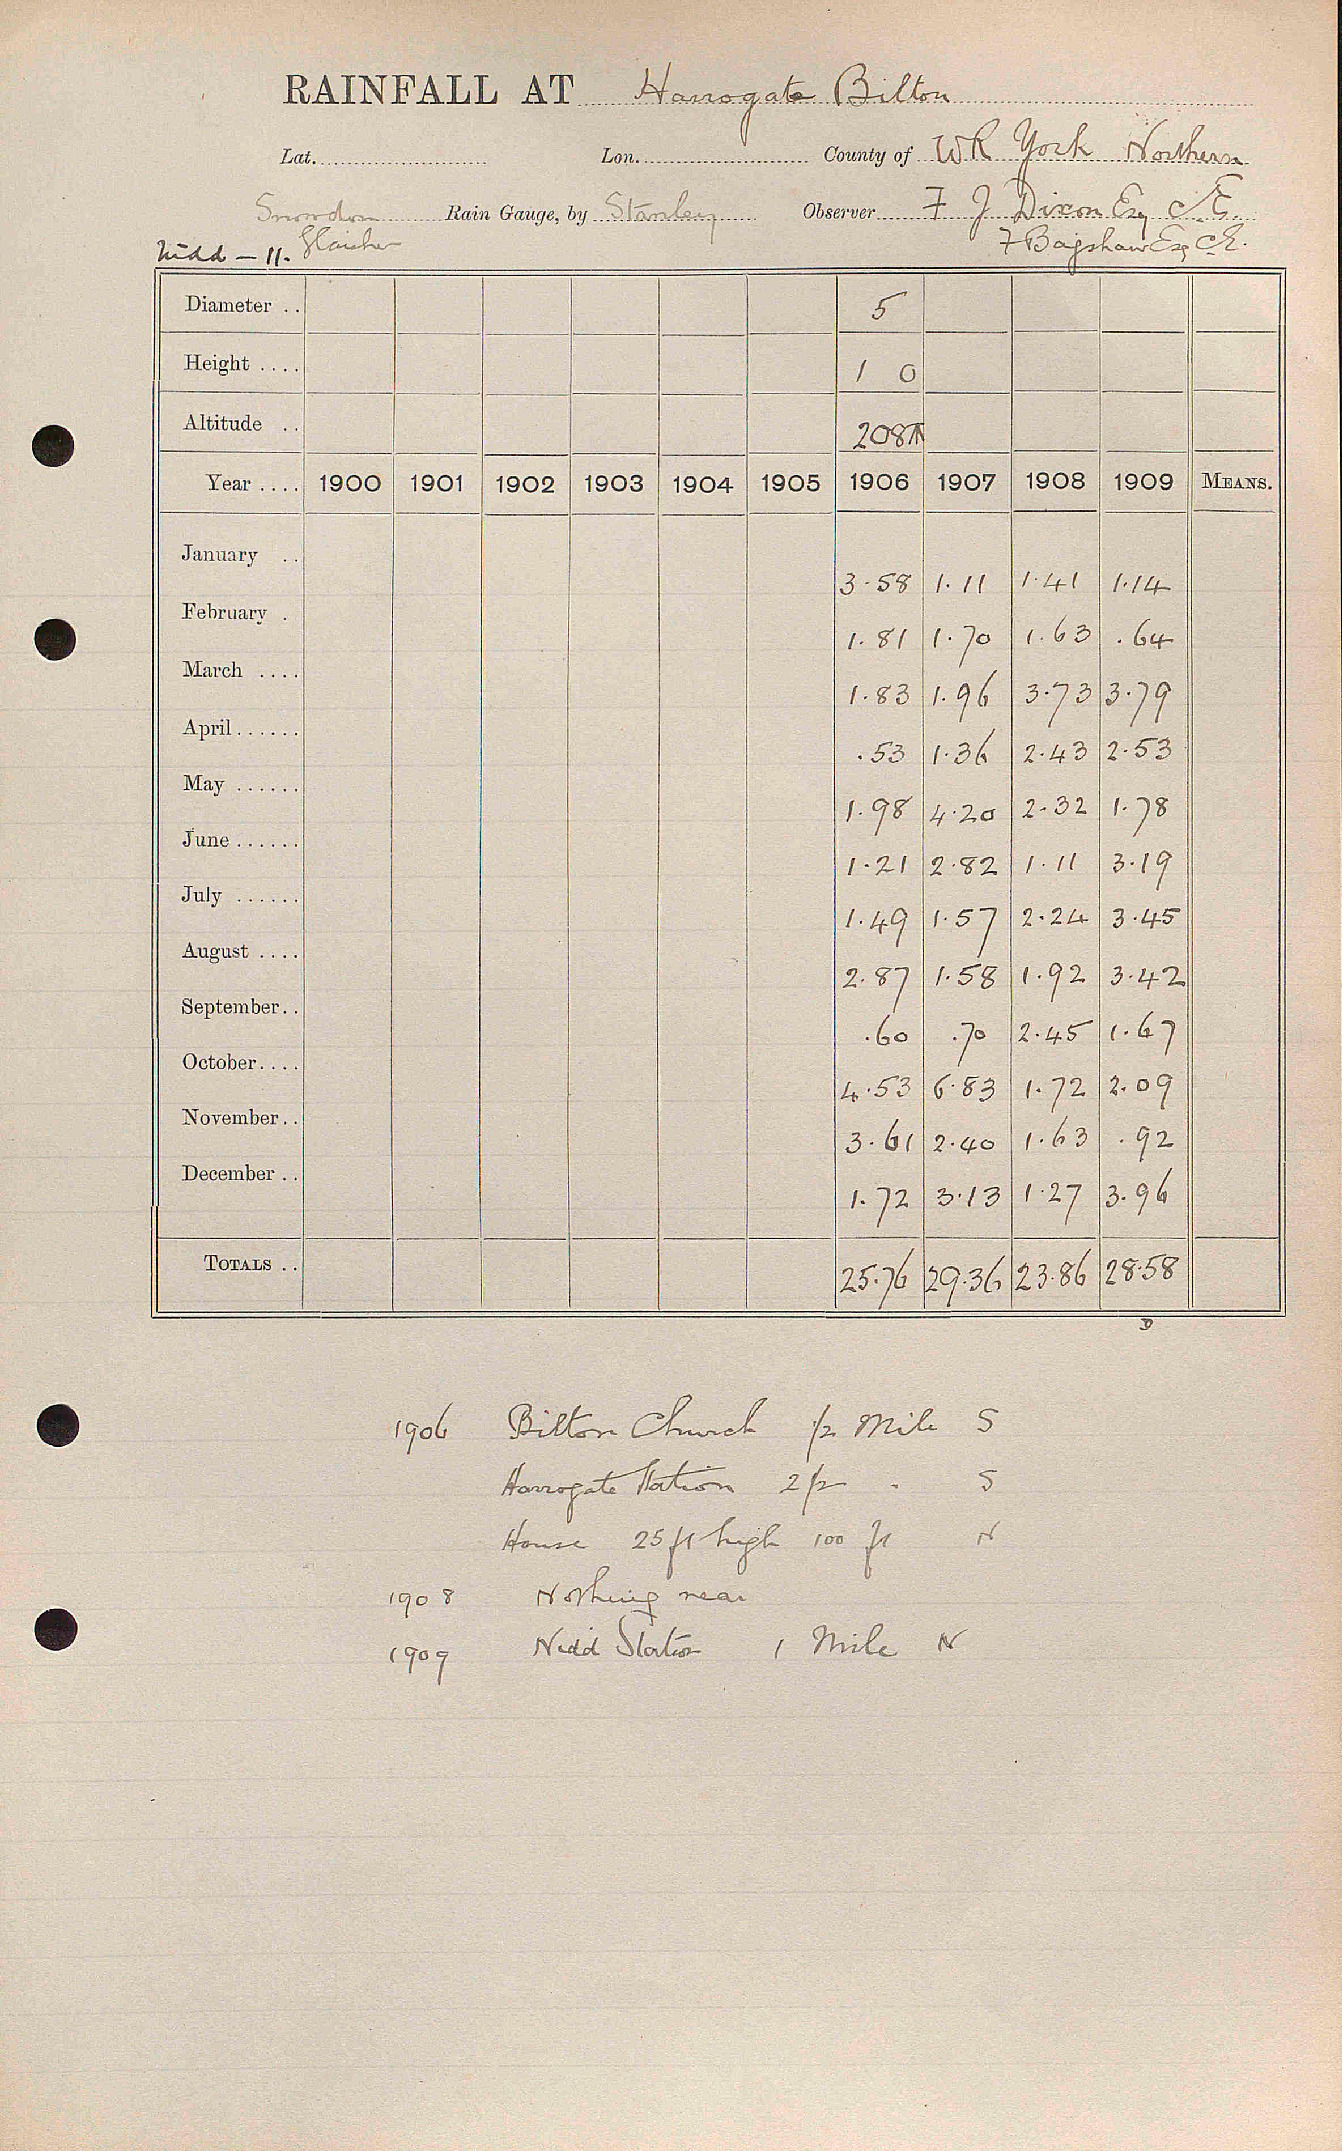 RAINFALL AT Harrogate Bilton
Lat. Lon. County of WR York Northern
Snowdon Rain Gauge, by Stanley Observer F J Dixon Esq C.E.
Nidd - 11. Glaisher F Bagshaw Esq C.E.
Diameter .. 5
Height .... 1 0
Altitude .. 208
Year .... 1900 1901 1902 1903 1904 1905 1906 1907 1908 1909 MEANS.
January .. 3.58 1.11 1.41 1.14
February . 1.81 1.70 1.63 .64
March .... 1.83 1.96 3.73 3.79
April...... .53 1.36 2.43 2.53
May ...... 1.98 4.20 2.32 1.78
June...... 1.21 2.82 1.11 3.19
July ...... 1.49 1.57 2.24 3.45
August .... 2.87 1.58 1.92 3.42
September.. .60 .70 2.45 1.67
October.... 4.53 6.83 1.72 2.09
November.. 3.61 2.40 1.63 .92
December .. 1.72 3.13 1.27 3.96
TOTALS .. 25.76 29.36 23.86 28.58
D
1906 Bilton Church 1/2 Mile S
Harrogate Station 2 1/2 " S
House 25 ft high 100 ft N
1908 Nothing near
1909 Nidd Station 1 Mile N